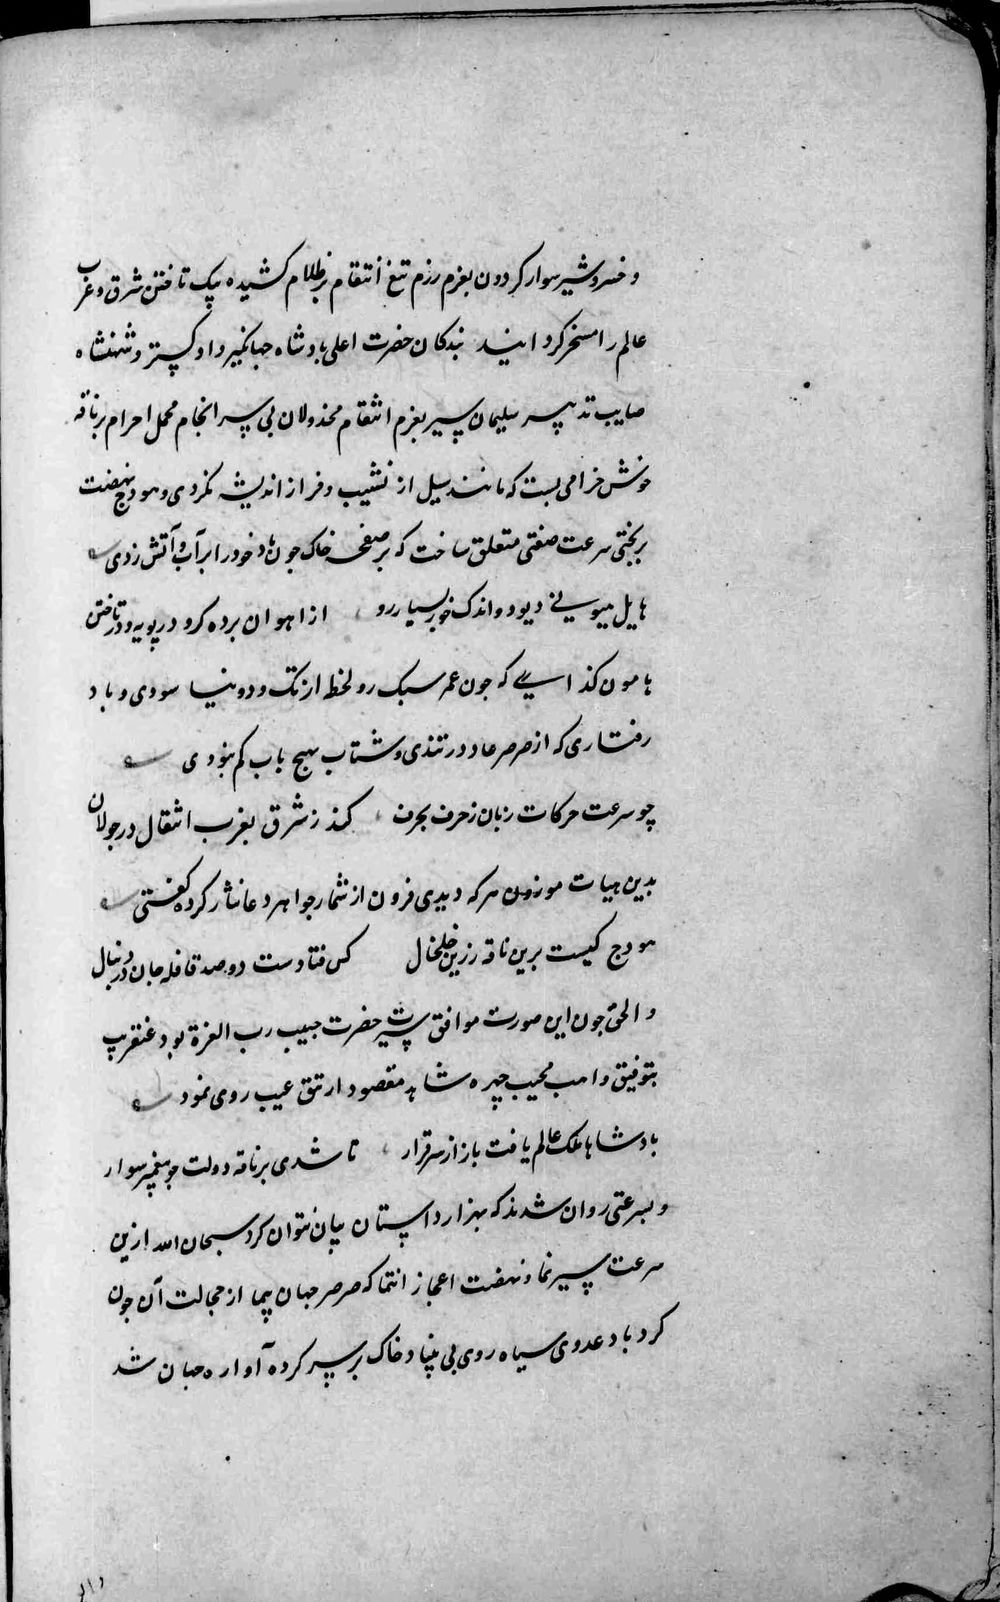 و خسرو شیر سوار کردون بعزم رزم تیغ انتقام بر ظلام کشیده بیک تافتن شرق و غرب
عالم را مسخر کردانید بندکان حضرت اعلی بادشاه جهانکیر داد کستر و شهنشاه
صایب تدبیر سلیمان سیر بعزم انتقام مخذولان بی سر انجام محمل احرام بر ناقه
خوش خرامی بست که مانند سیل از نشیب و فراز اندیشه نکردی و هودج نهضت
بر بختی سرعت صفتی متعلق ساخت که بر صفحه خاک جون باد خود را بر آب و آتش زدی
هایل هیونی دیو دو اندک خور بسیار رو از اهوان برده کرو در پویه و در تاختن
هامون کذاری که جون عمر سبک رو لحظه از تک و دو نیاسودی و باد
رفتاری که از صرصر عاد در تندی و شتاب بهیج باب کم نبودی
چو سرعت حرکات زبان ز حرف بحرف کند ز شرق بغرب انتقال در جولان
بدین هیات موزون هر که دیدی فزون از شمار جواهر دعا نثار کرده کفتی
هودج کیست برین ناقه زرین خلخال کش فتادست دو صد قافله جان در دنبال
و الحق جون این صورت موافق سیرت حضرت حبیب رب العزة بود عنقریب
بتوفیق واهب مجیب چهره شاهد مقصود از تتق غیب روی نمود
بادشاها ملک عالم یافت باز از سر قرار تا شدی بر ناقه دولت جو پیغمبر سوار
و بسرعتی روان شدند که بهزار داستان بیان نتوان کرد سبحان الله ازین
سرعت سیر نما و نهضت اعجاز انتما که صرصر جهان پیما از خجالت آن جون
کرد باد عدوی سیاه روی بی بنیاد خاک بر سر کرده آواره جهان شد